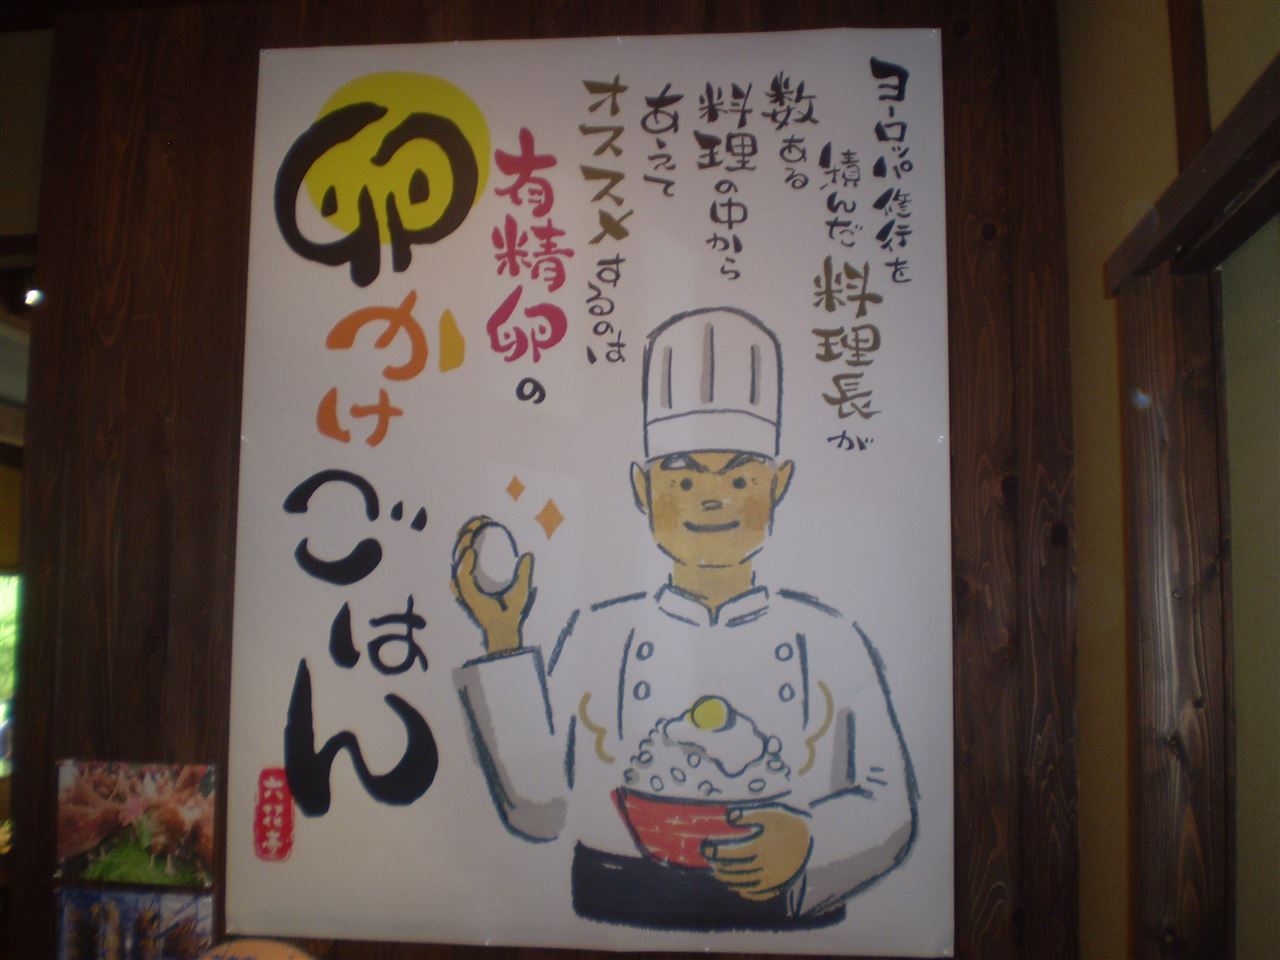 ヨーロッパ修行を
積んだ料理長が
数ある
料理の中から
あえて
オススメするのは
有精卵の
卵かけごはん
六花亭